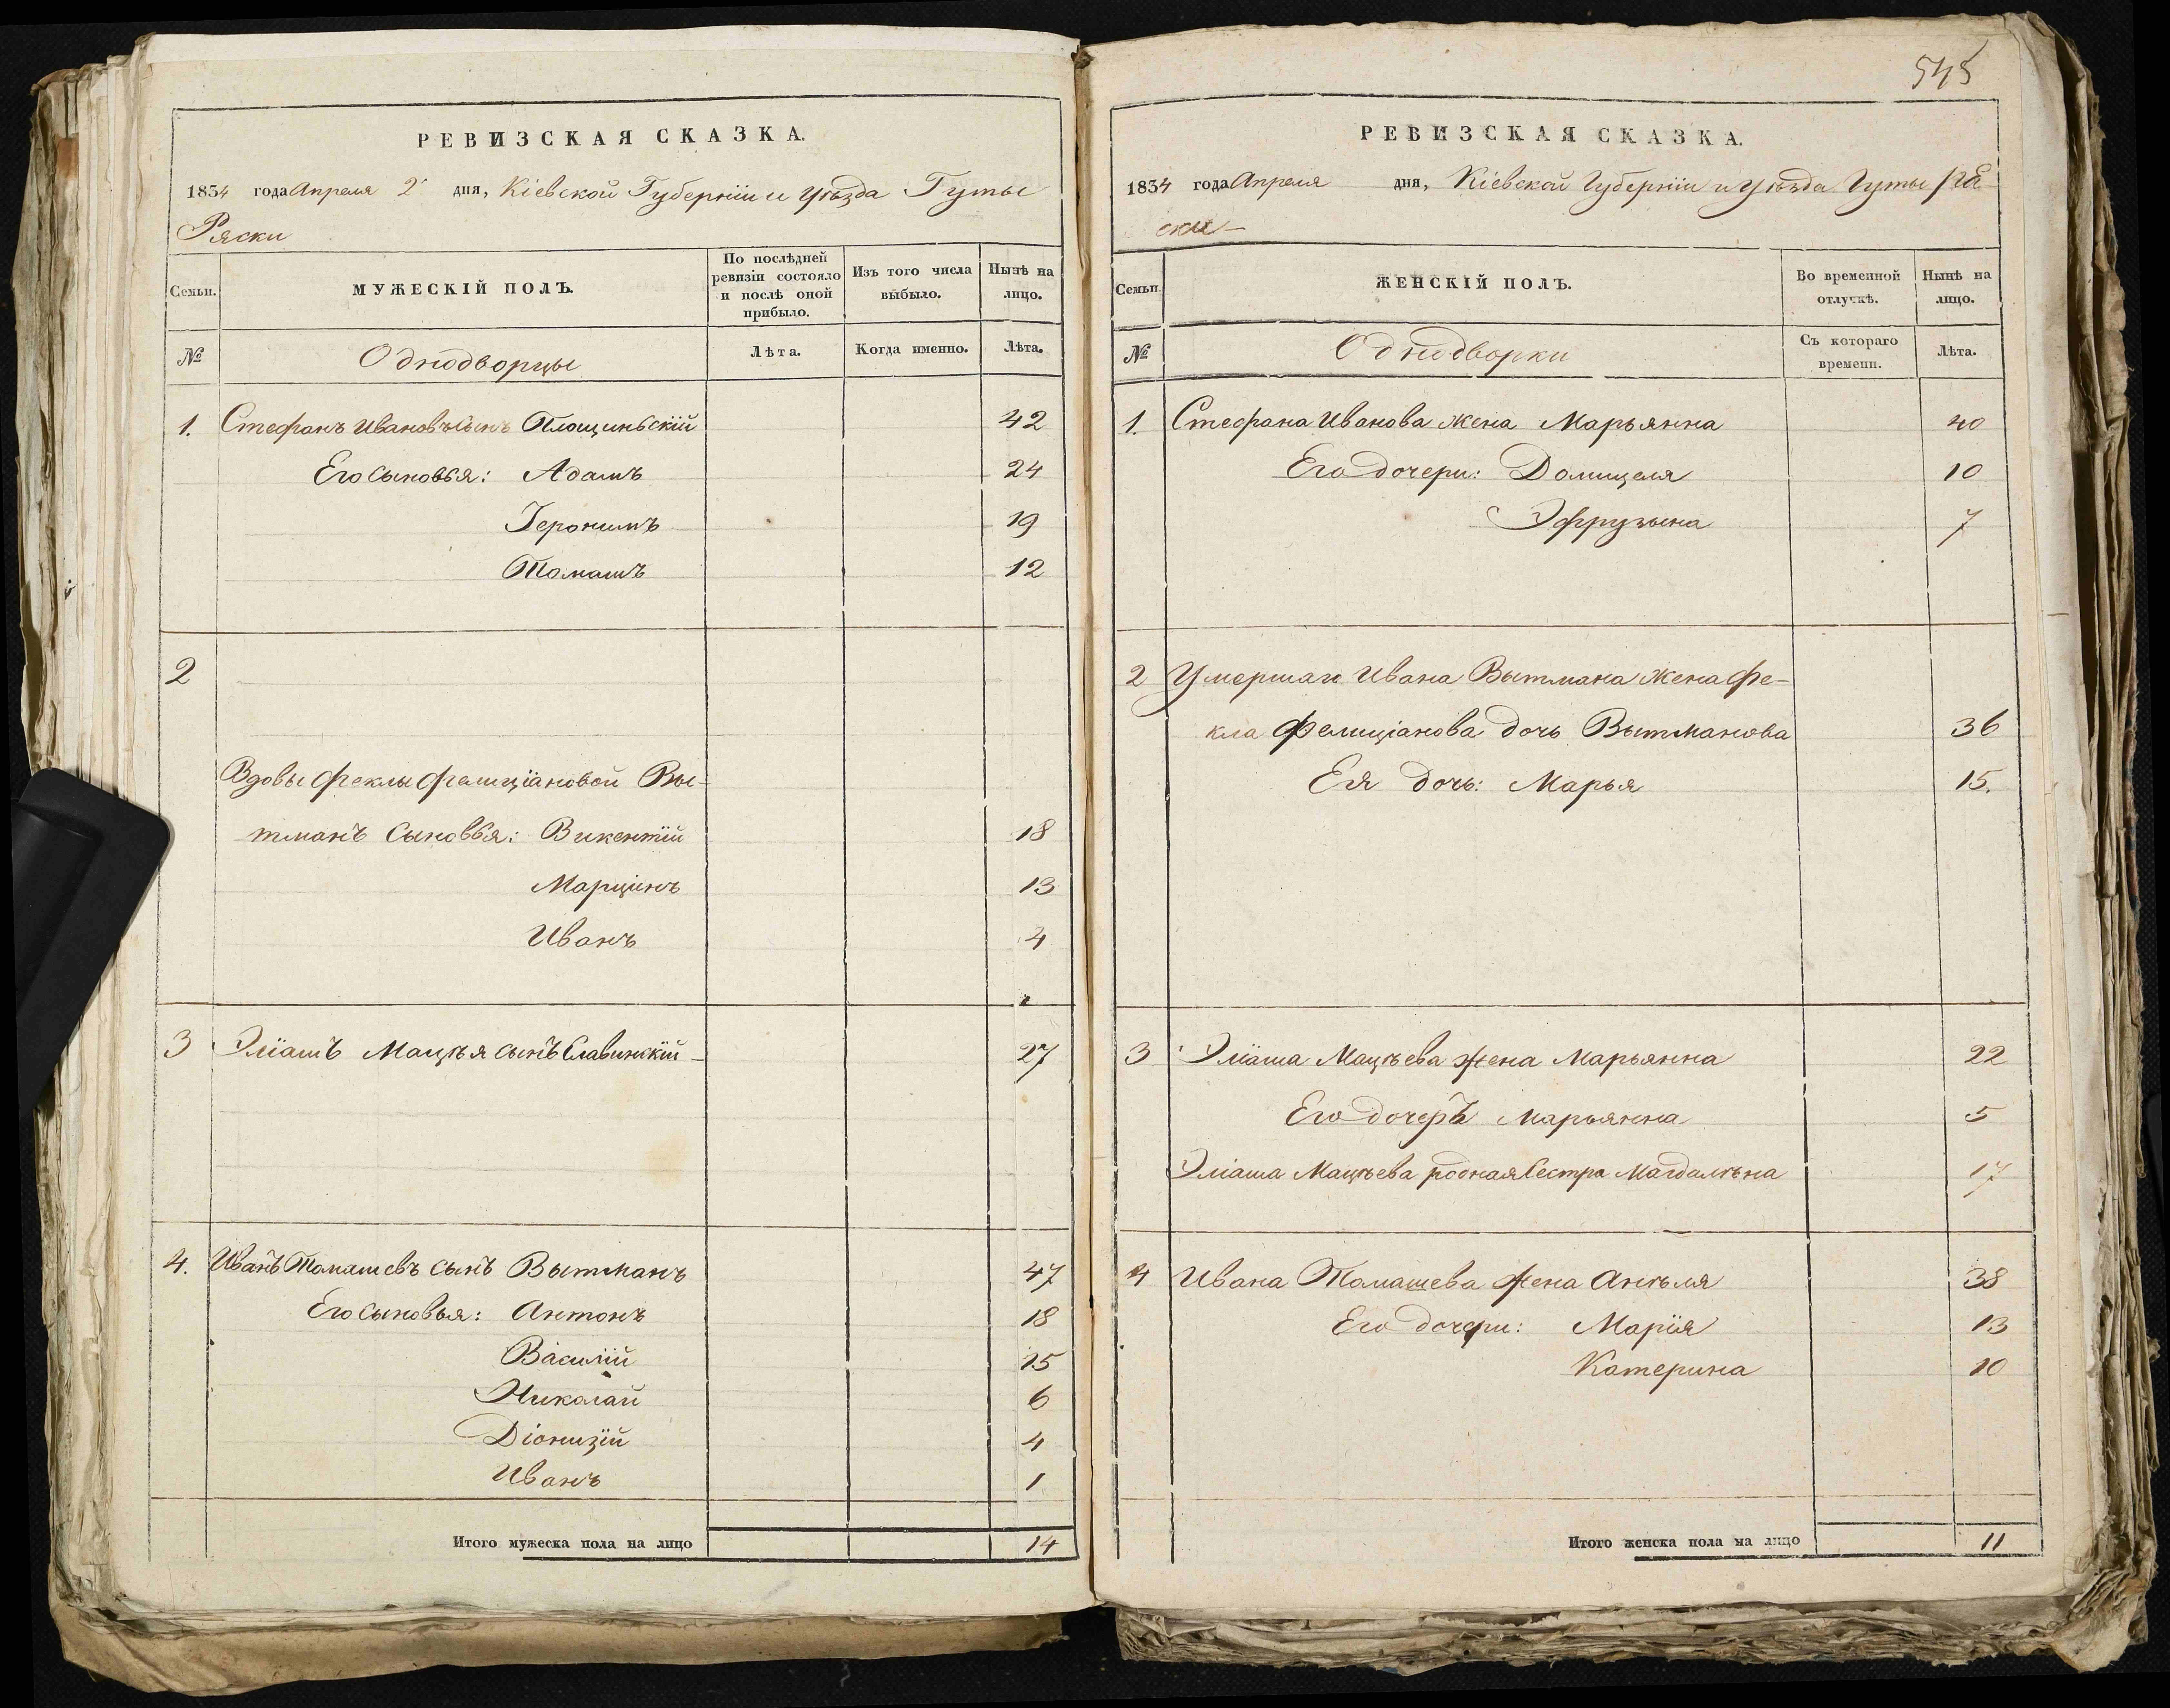 РЕВИЗСКАЯ СКАЗКА.
1834 года Апреля 2 дня, Кіевской Губерніи и уѣзда Гуты
Ряски
Семьи.
МУЖЕСКІЙ ПОЛЪ.
По послѣдней ревизіи состояло и послѣ оной прибыло.
Изъ того числа выбыло.
Нынѣ на лицо.
№
Однодворцы
Лѣта.
Когда именно.
Лѣта.
1. Стефанъ Ивановъ сынъ Площиньскій 42
Его сыновья: Адамъ 24
Іеронимъ 19
Томашъ 12
2
Вдовы Феклы Фелиціановой Вы-
тманъ сыновья: Викентій 18
Марцінъ 13
Иванъ 4
3 Эліашъ Мацѣя сынъ Славинскій 27
4. Иванъ Томашевъ сынъ Вытманъ 47
Его сыновья: Антонъ 18
Василій 15
Николай 6
Діонизій 4
Иванъ 1
Итого мужеска пола на лицо 14
545
РЕВИЗСКАЯ СКАЗКА.
1834 года Апреля дня, Кіевской Губерніи и Уѣзда Гуты Ря-
ски
Семьи.
ЖЕНСКІЙ ПОЛЪ.
Во временной отлучкѣ.
Нынѣ на лицо.
№
Однодворки
Съ котораго времени.
Лѣта.
1. Стефана Иванова жена Марьянна 40
Его дочери: Домицеля 10
Эфрузына 7
2 Умершаго Ивана Вытмана жена Фе-
кла Фелиціанова дочь Вытманова 36
Ея дочь: Марья 15.
3 Эліаша Мацѣева жена Марьянна 22
Его дочерь Марьянна 5
Эліаша Мацѣева родная Сестра Магдалѣна 17
4 Ивана Томашева жена Анѣля 38
Его дочери: Марія 13
Катерина 10
Итого женска пола на лицо 11